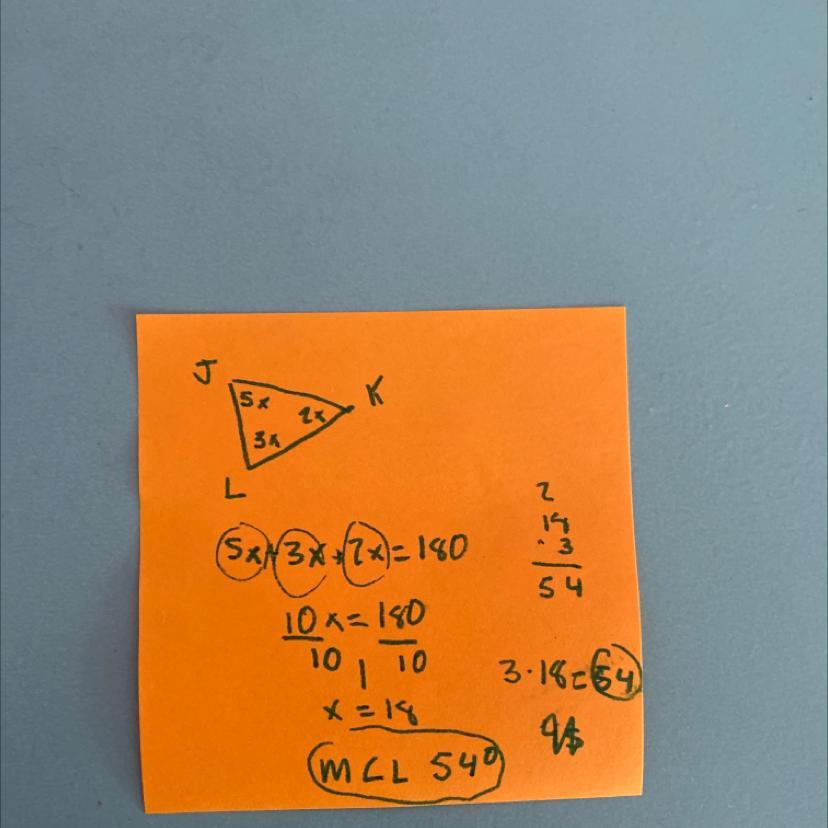 J
K
5x
2x
3x
L
5x+3x+2x=180
10x=180
10 10
x=18
m∠L 54°
2
18
· 3
54
3·18=54